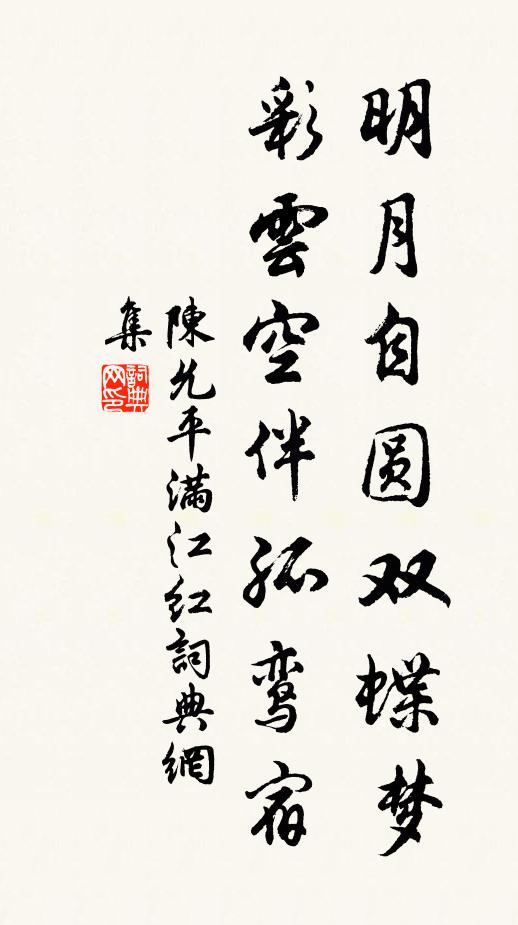 明月自圆双蝶梦
彩雲空伴孤鸾宿
陳允平满江红詞典網
集
詞典网印